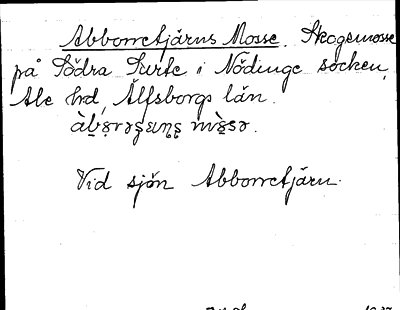 Abborretjärns Mosse. Skogsmosse
på Södra Surte i Nödinge socken,
Ale hd, Älfsborgs län.
Vid sjön Abborretjärn.